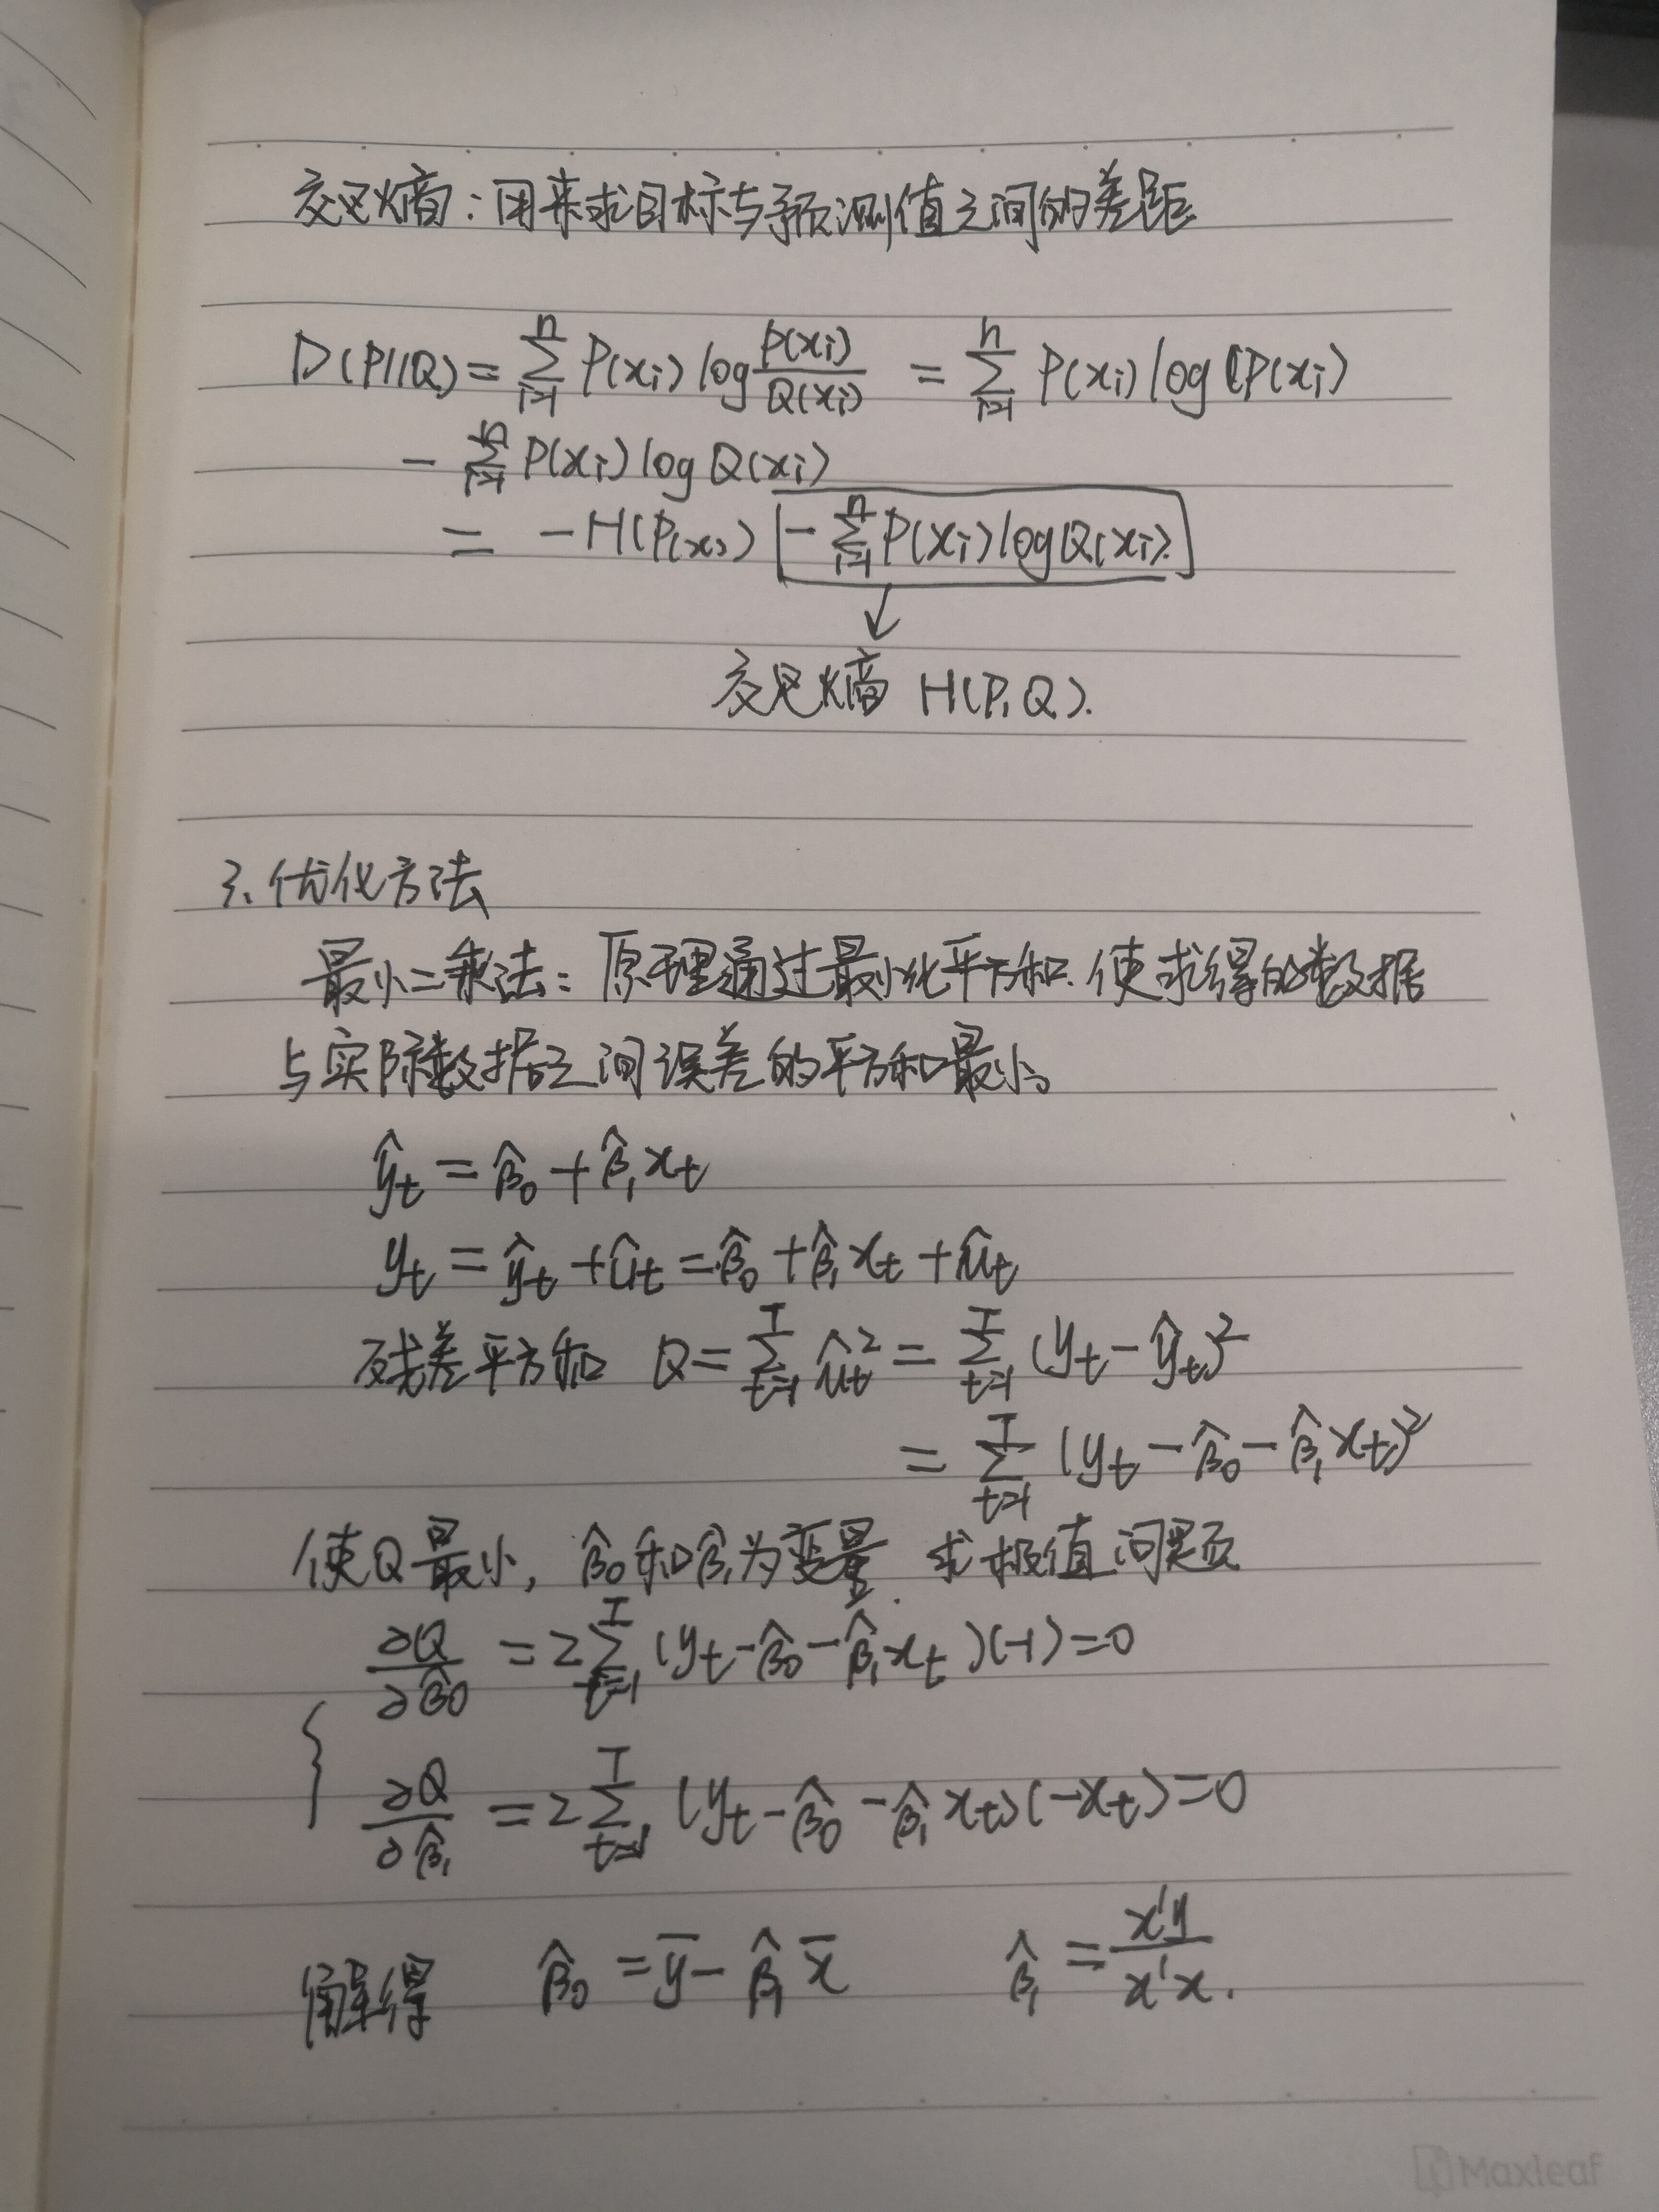 交叉熵：用来求目标与预测值之间的差距
D(P||Q) = ∑_{i=1}^{n} P(xi) log P(xi)/Q(xi) = ∑_{i=1}^{n} P(xi) log(P(xi)
- ∑_{i=1}^{n} P(xi) log Q(xi)
= -H(P(x)) [- ∑_{i=1}^{n} P(xi) log Q(xi)]
↓
交叉熵 H(P,Q).
3. 优化方法
最小二乘法：原理通过最小化平方和.使求得的数据
与实际数据之间误差的平方和最小。
ŷt = β̂0 + β̂1 xt
yt = ŷt + ût = β̂0 + β̂1 xt + ût
残差平方和 Q = ∑_{t=1}^{T} ût² = ∑_{t=1}^{T} (yt - ŷt)²
= ∑_{t=1}^{T} (yt - β̂0 - β̂1 xt)²
使Q最小, β̂0和β̂1为变量. 求极值问题
∂Q/∂β̂0 = 2∑_{t=1}^{T} (yt - β̂0 - β̂1 xt)(-1) = 0
{
∂Q/∂β̂1 = 2∑_{t=1}^{T} (yt - β̂0 - β̂1 xt)(-xt) = 0
解得 β̂0 = ȳ - β̂1 x̄ β̂1 = x'y/x'x.
Maxleaf